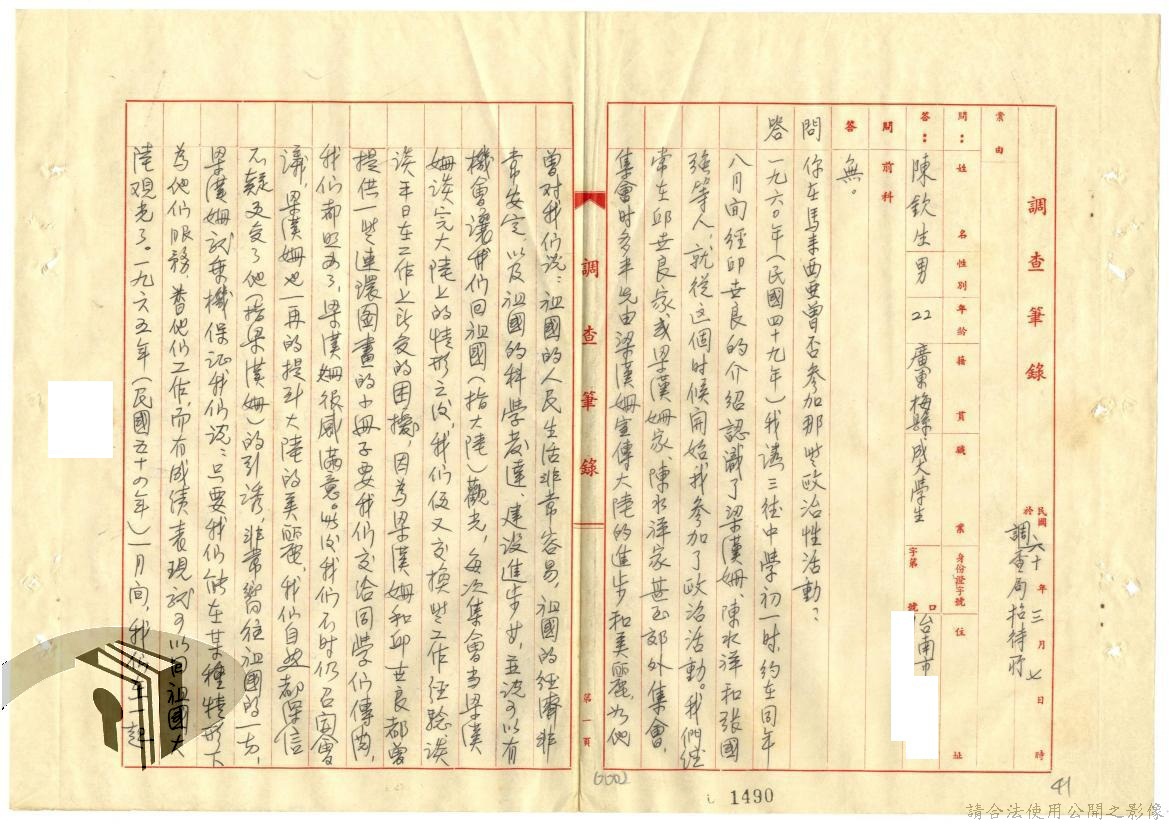 調查筆錄
民國六十年三月七日時
於調查局招待所
案由
問：姓名 性別 年齡 籍貫 職業 身份證字號 住址
答：陳欽生 男 22 廣東梅縣 成大學生 字第 號 台南市
問 前科
答 無。
問 你在馬來西亞曾否參加那些政治性活動？
答 一九六○年（民國四十九年）我讀三德中學初一時，約在同年
八月間經邱世良的介紹認識了梁漢珊、陳水洋和張國
強等人，就從這個时候開始我參加了政治活動。我們經
常在邱世良家、或梁漢珊家、陳水洋家甚至郊外集會，
集會时多半先由梁漢珊宣傳大陸的進步和美麗，如他
曾对我们说：祖國的人民生活非常容易，祖國的經濟非
常安定，以及祖國的科學發達、建設進步女，並说可以有
機會讓我们回祖國（指大陸）觀光，每次集會当梁漢
珊谈完大陸上的情形之後，我们便又交換些工作经驗，谈
谈平日在工作上所受的困擾，因為梁漢姍和邱世良都曾
提供一些連環图畫的小冊子要我们交给同學们傳阅，
我们都照办了，梁漢姍很感滿意。此後我们不时仍召開會
議，梁漢姍也一再的提到大陸的美麗，我们自然都深信
不疑又受了他（指梁漢姍）的引誘，非常嚮往祖國的一切，
梁漢姍就乘機保证我们说：只要我们能在某種情形下
為他们服務，替他们工作，而有成績表現就可以回祖國大
陸观光了。一九六五年（民國五十四年）一月间，我们在一起
調查筆錄
第一頁
(200)
1490
41
請合法使用公開之影像